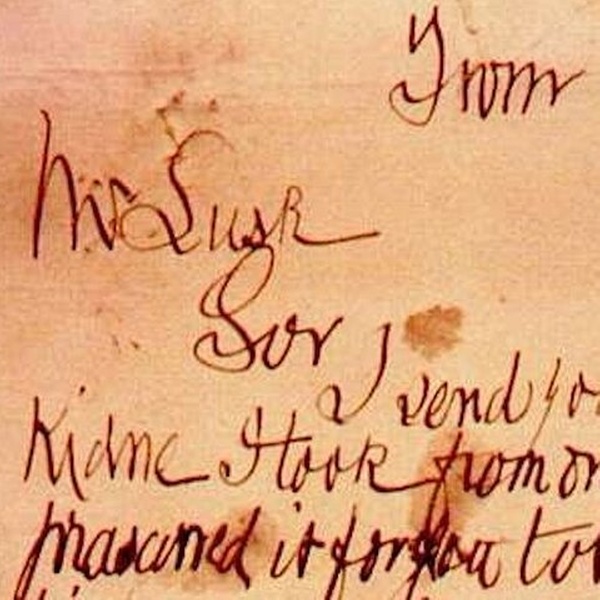 From
Mr Lusk
Sor
I send yo
Kidne I took from on
prasarved it for you to